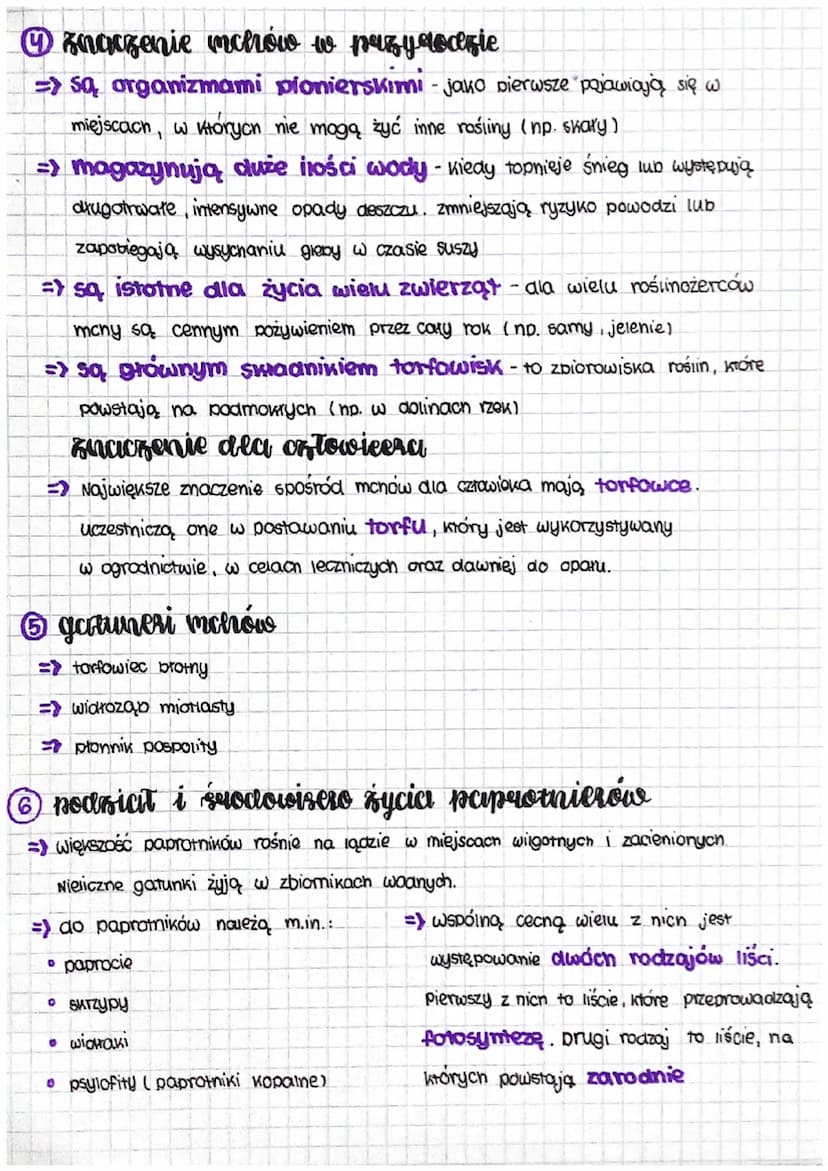 ④ znaczenie mchów w przyrodzie
=> są organizmami pionierskimi - jako pierwsze pojawiają się w
miejscach, w których nie mogą żyć inne rośliny (np. skały)
=> magazynują duże ilości wody - kiedy topnieje śnieg lub występują
długotrwałe, intensywne opady deszczu. zmniejszają ryzyko powodzi lub
zapobiegają wysychaniu gleby w czasie suszy
=> są istotne dla życia wielu zwierząt - dla wielu roślinożerców
mchy są cennym pożywieniem przez cały rok (np. sarny, jelenie)
=> są głównym składnikiem torfowisk - to zbiorowiska roślin, które
powstają na podmokłych (np. w dolinach rzek)
znaczenie dla człowieka
=> Największe znaczenie spośród mchów dla człowieka mają torfowce.
uczestniczą one w postawaniu torfu, który jest wykorzystywany
w ogrodnictwie, w celach leczniczych oraz dawniej do opału.
⑤ gatunki mchów
=> torfowiec błotny
=> widłoząb miotlasty
=> płonnik pospolity
⑥ podział i środowisko życia paprotników
=> większość paprotników rośnie na lądzie w miejscach wilgotnych i zacienionych
Nieliczne gatunki żyją w zbiornikach wodnych.
=> do paprotników należą m.in.:
• paprocie
• skrzypy
• widłaki
• psylofity (paprotniki kopalne)
=> wspólną cechą wielu z nich jest
występowanie dwóch rodzajów liści.
Pierwszy z nich to liście, które przeprowadzają
fotosyntezę. Drugi rodzaj to liście, na
których powstają zarodnie